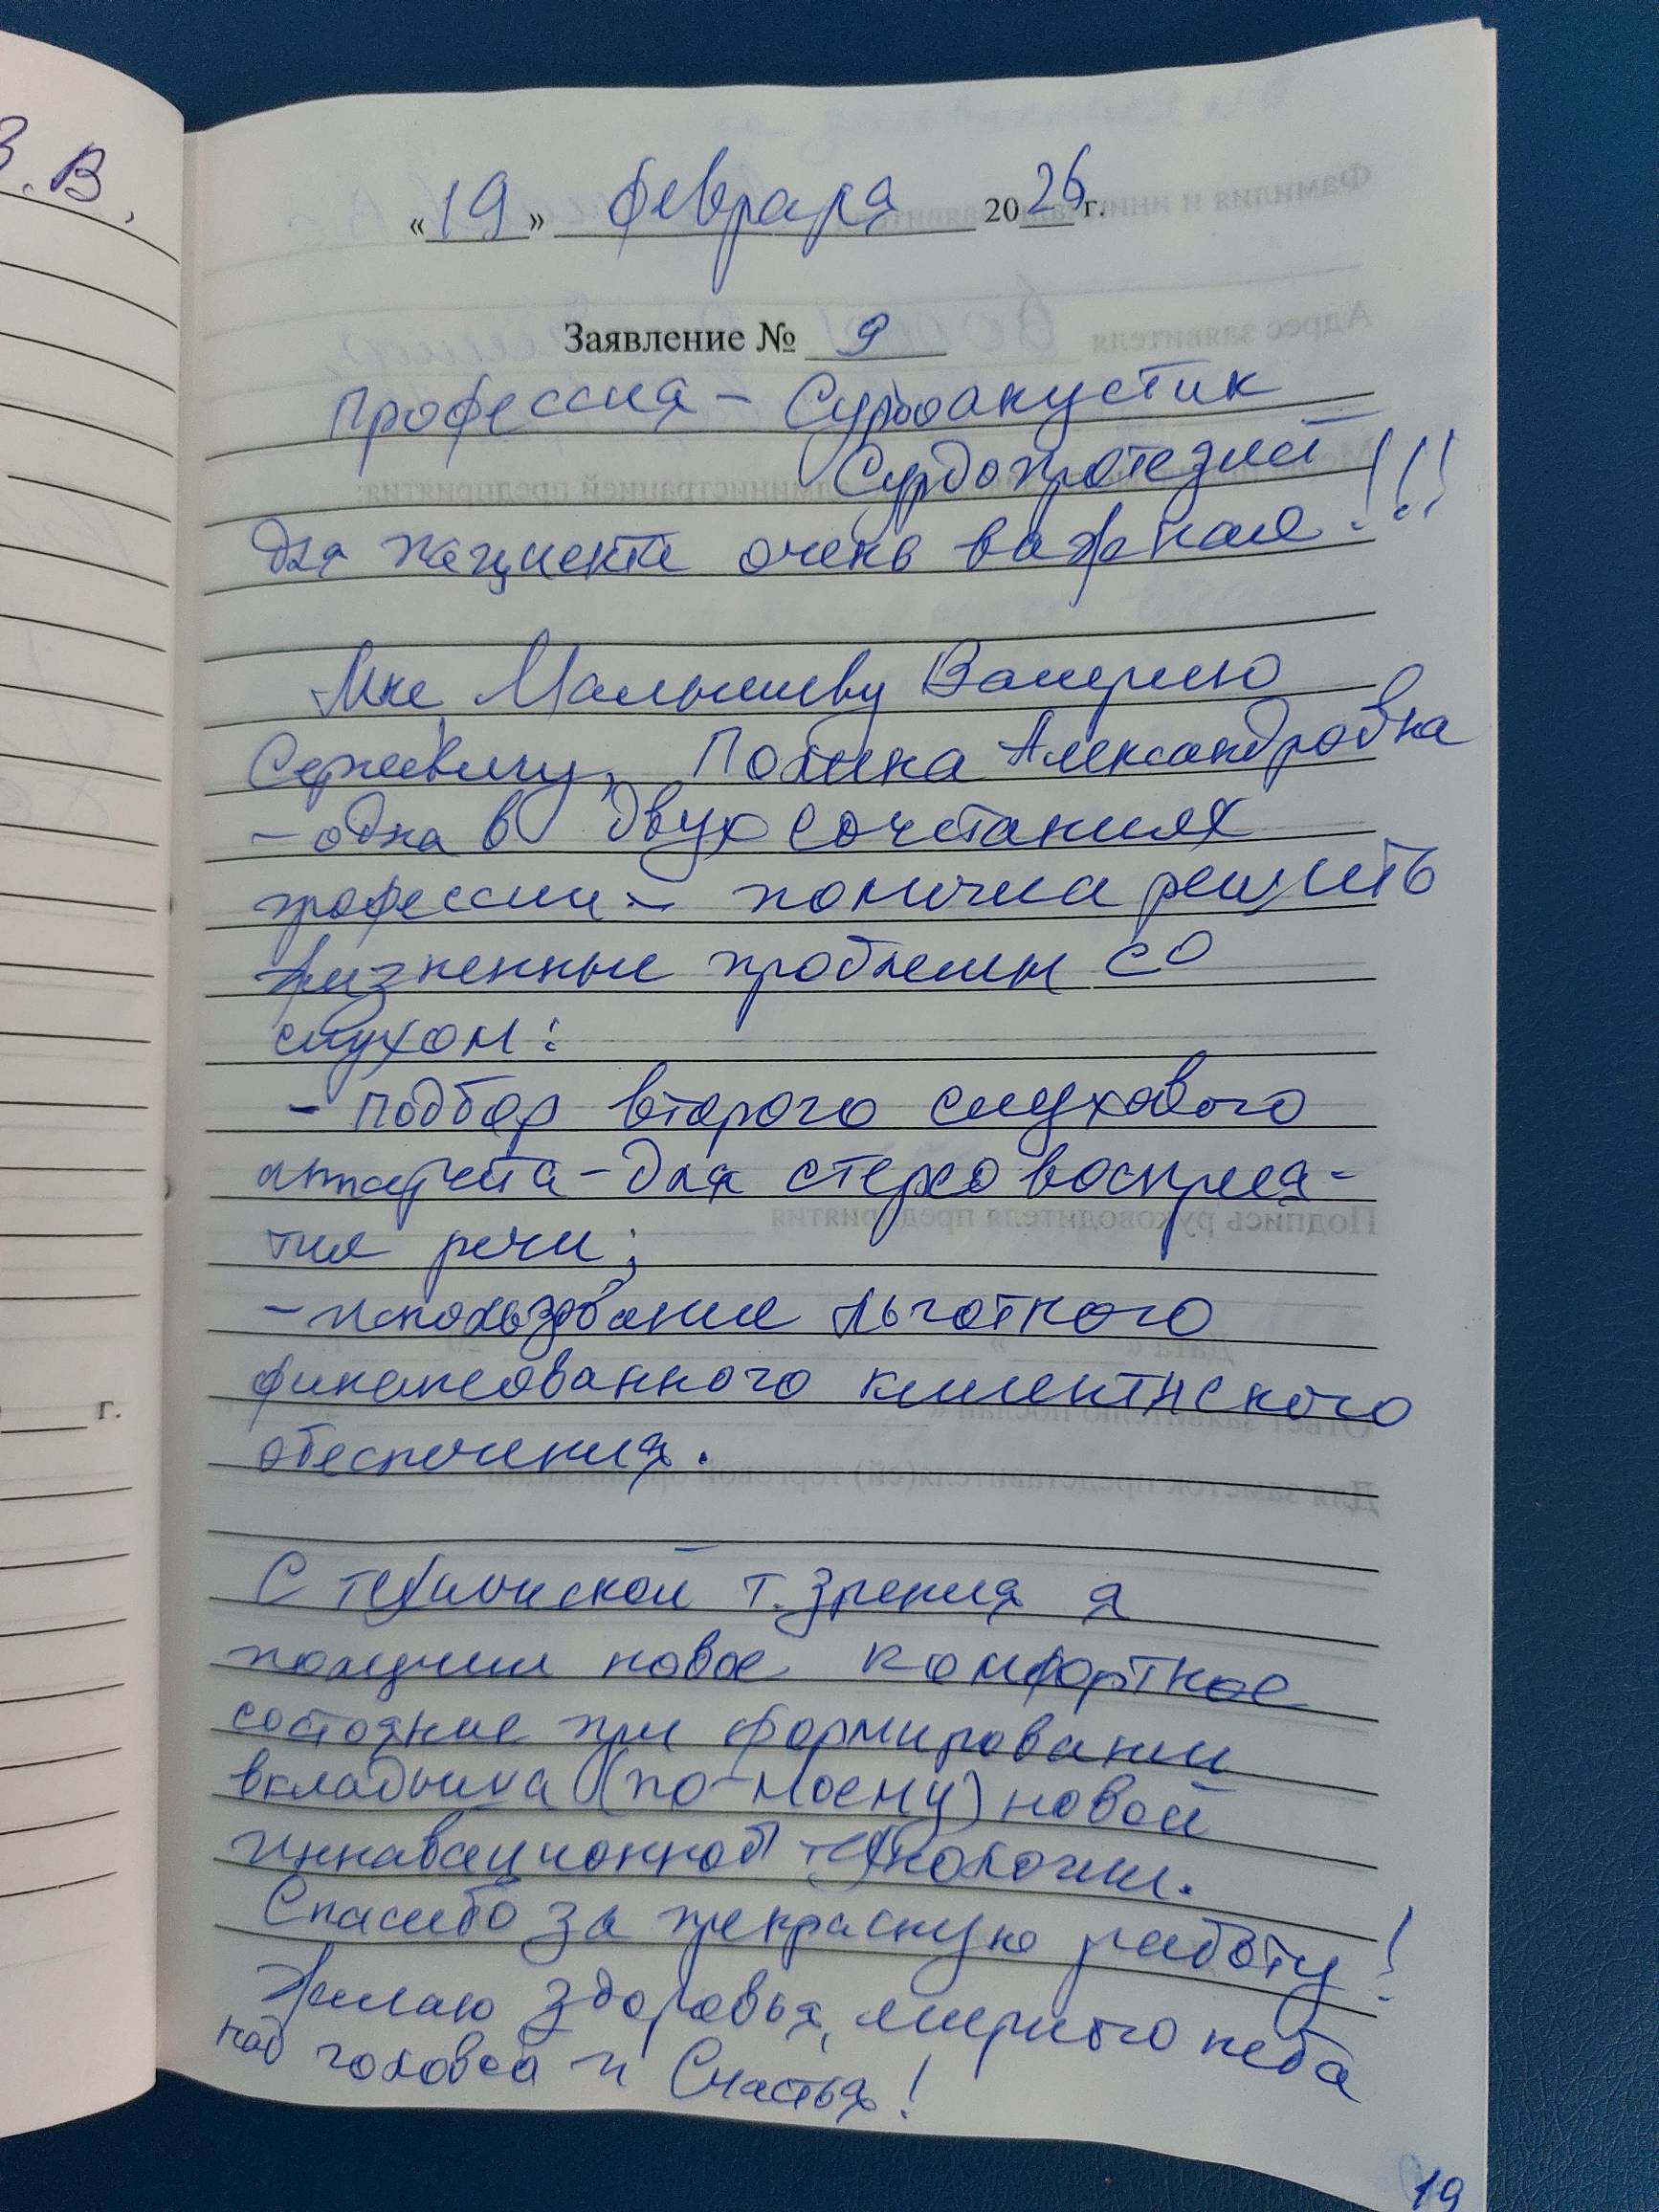 В.
г.
«19» февраля 2026 г.
Заявление № 9
Профессия – Сурдоакустик
Сурдопротезист
для пациента очень важная!!!
Мне Малышеву Валерию
Сергеевичу, Полина Александровна
– одна в двух сочетаниях
профессии – помогла решить
жизненные проблемы со
слухом:
– подбор второго слухового
аппарата – для стерео восприя-
тия речи;
– использования льготного
финансованного клиентского
обеспечения.
С технической т. зрения я
получил новое комфортное
состояние при формировании
вкладыша (по-моему) новой
иннавационной технологии.
Спасибо за прекрасную работу!
Желаю здоровья, мирного неба
над головой и Счастья!
19